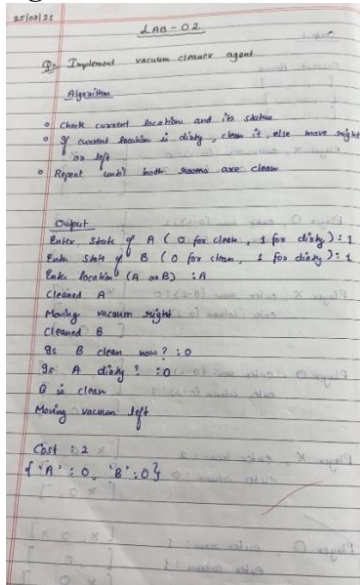 25/08/25
LAB-02
Q. Implement vacuum cleaner agent
Algorithm
o Check current location and its status
o If current location is dirty, clean it, else move right
or left
o Repeat until both rooms are clean
Output
Enter state of A (0 for clean, 1 for dirty): 1
Enter state of B (0 for clean, 1 for dirty): 1
Enter location (A or B) : A
Cleaned A
Moving vacuum right
Cleaned B
Is B clean now? : 0
Is A dirty? : 0
is clean
Moving vacuum left
Cost : 2
{'A' : 0, 'B' : 0}